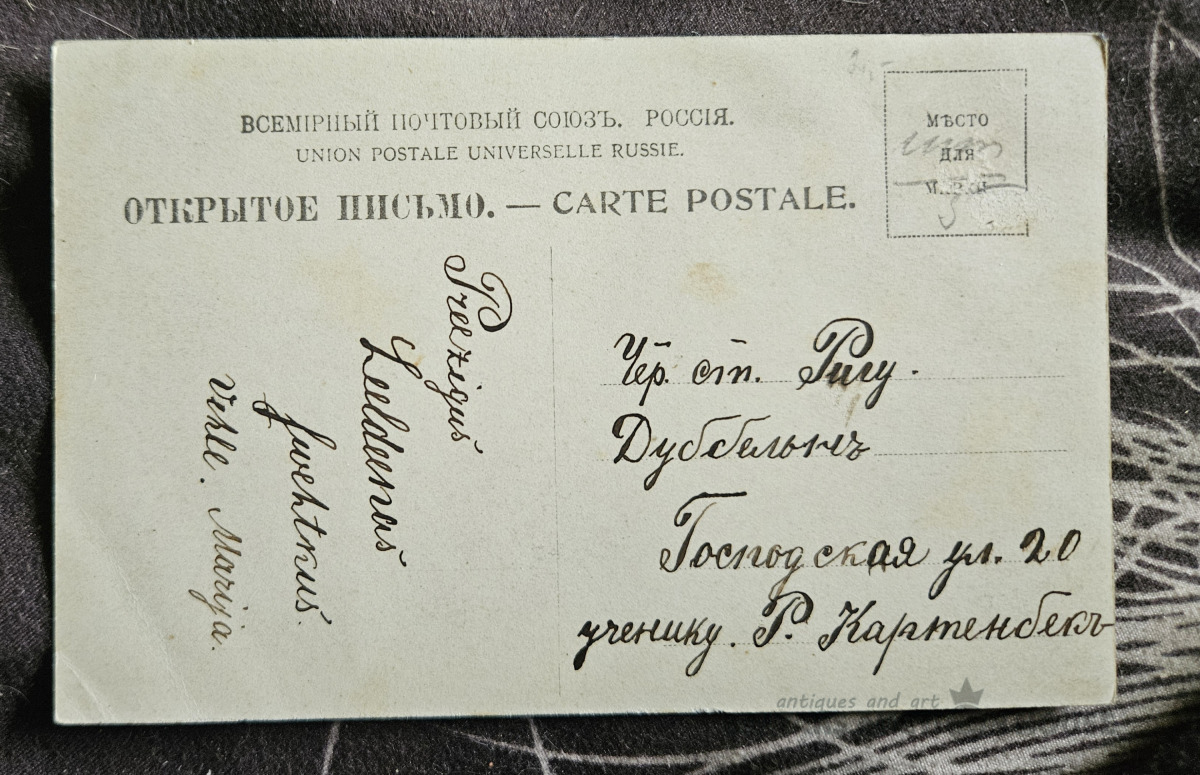 ВСЕМІРНЫЙ ПОЧТОВЫЙ СОЮЗЪ. РОССІЯ.
UNION POSTALE UNIVERSELLE RUSSIE.
ОТКРЫТОЕ ПИСЬМО. — CARTE POSTALE.
МѢСТО
для
Preezigus
Leeldenas
swehtkus.
Wehle. Marija.
Чер. ст. Ригу.
Дуббельнъ
Господская ул. 20
ученику. Р. Картенбекъ
antiques and art